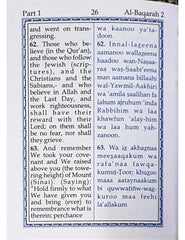 Part 1 26 Al-Baqarah 2
and went on trans-
gressing.
62. Those who be-
lieve (in the Qur'an),
and those who follow
the Jewish (scrip-
tures), and the
Christians and
Sabians,
and who believe in Allah
and the Last Day,
and work
righteousness,
shall have
their reward
with their
Lord; on them
shall be no fear,
nor shall they
grieve.
63. And remember
We took your cove-
nant and We raised
above you (the tower-
ing height) of Mount
(Sinai): (Saying):
"Hold firmly to what
We have given you
and bring (ever) to
remembrance what is
therein: perchance
wa kaanoo ya'ta-
doon.
62. Innal-lazeena
aamanoo wallazeena
haadoo wan-Nasaa-
raa was-Saabi'eena
man aamana billaahi
wal-Yawmil-Aakhiri
wa 'amila saalihan
falahum ajruhum 'inda
Rabbihim wa laa
khawfun 'alay-him
wa laa hum yah-
zanoon.
63. Wa iz akhaznaa
meesaaqakum wa
rafa'naa fawqa-
kumut-Toor; khuzoo
maaa aataynaakum
bi quwwatinw-waz-
kuroo maa feehi
la'allakum